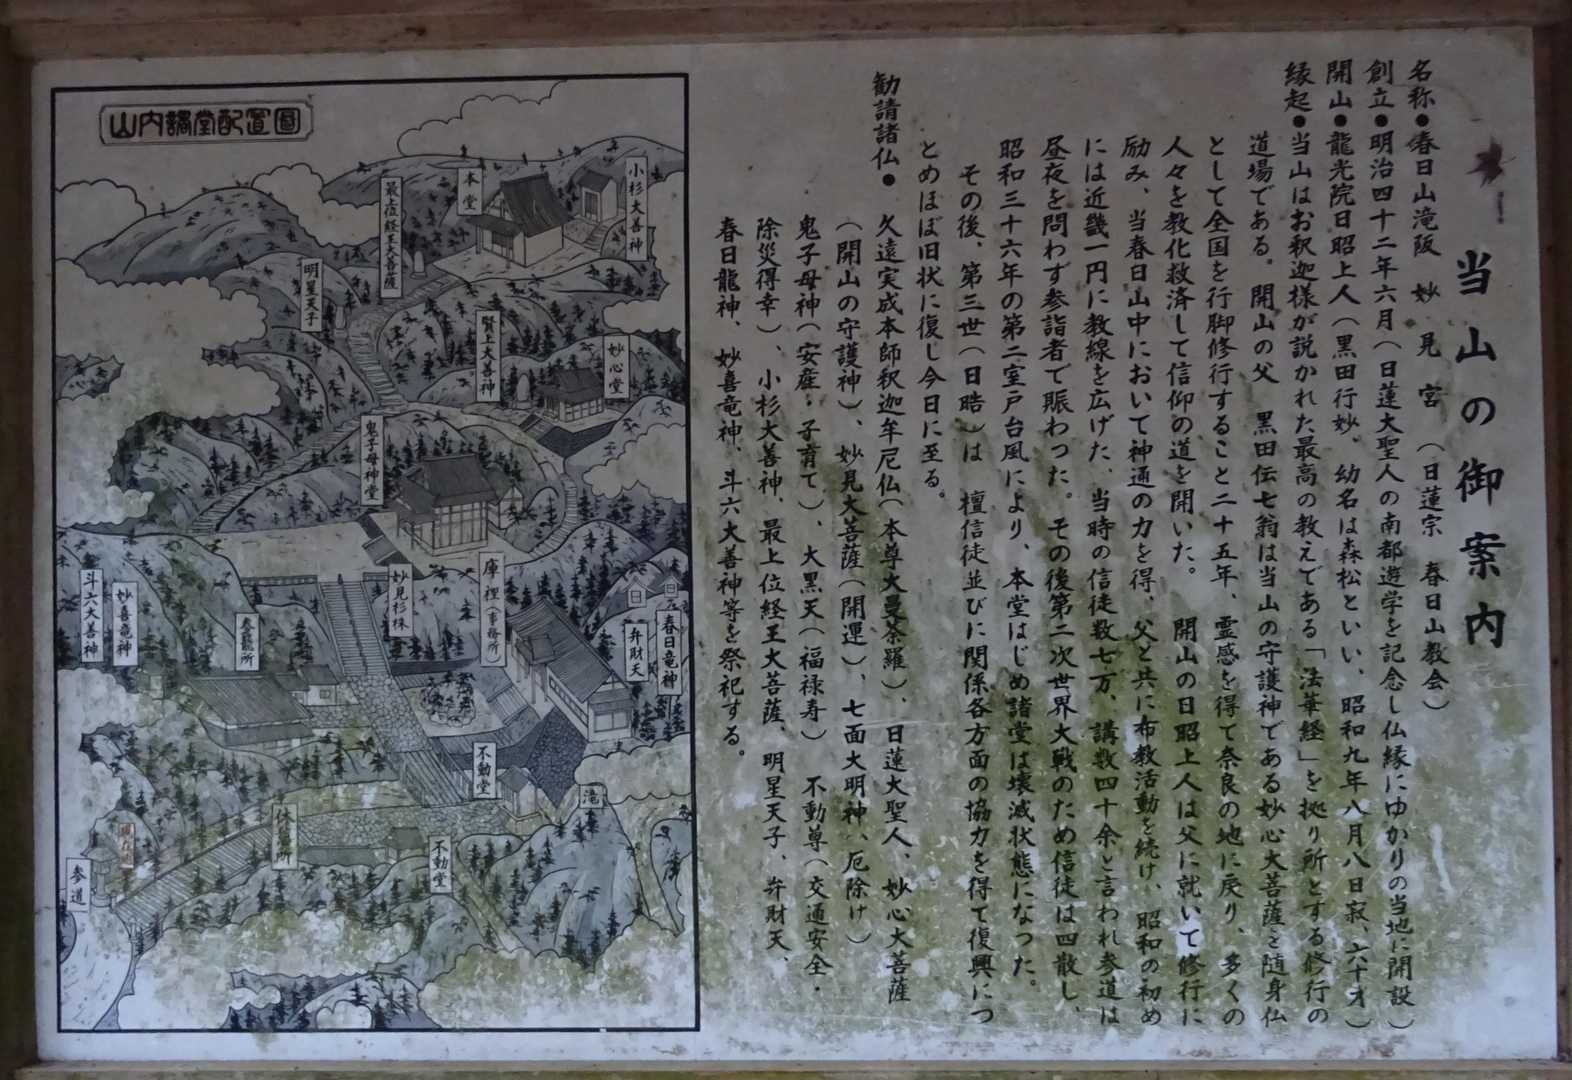 当山の御案内
名称●春日山滝阪　妙見宮　（日蓮宗　春日山教会）
創立●明治四十二年六月（日蓮大聖人の南都遊学を記念し仏縁にゆかりの当地に開設）
開山●龍光院日昭上人（黒田行妙、幼名は森松といい、昭和九年八月八日寂、六十才）
縁起●当山はお釈迦様が説かれた最高の教えである「法華経」を拠り所とする修行の
道場である。開山の父　黒田伝七翁は当山の守護神である妙心大菩薩を随身仏
として全国を行脚修行すること二十五年、霊感を得て奈良の地に戻り、多くの
人々を教化救済して信仰の道を開いた。　開山の日昭上人は父に就いて修行に
励み、当春日山中において神通の力を得、父と共に布教活動を続け、昭和の初め
には近畿一円に教線を広げた、当時の信徒数七万、講数四十余と言われ参道は
昼夜を問わず参詣者で賑わった。その後第二次世界大戦のため信徒は四散し、
昭和三十六年の第二室戸台風により、本堂はじめ諸堂は壊滅状態になった。
その後、第三世（日晧）は　檀信徒並びに関係各方面の協力を得て復興につ
とめほぼ旧状に復し今日に至る。
勧請諸仏●　久遠実成本師釈迦牟尼仏（本尊大曼荼羅）、日蓮大聖人、妙心大菩薩
（開山の守護神）、妙見大菩薩（開運）、七面大明神（厄除け）
鬼子母神（安産・子育て）、大黒天（福禄寿）　不動尊（交通安全・
除災得幸）、小杉大善神、最上位経王大菩薩、明星天子、弁財天、
春日龍神、妙喜竜神、斗六大善神等を祭祀する。
山内諸堂配置圖
小杉大善神
本堂
最上位経王大菩薩
明星天子
賢上大善神
妙心堂
鬼子母神堂
庫裡（事務所）
妙見杉株
春日竜神
弁財天
参籠所
妙喜竜神
斗六大善神
不動堂
滝
休憩所
不動堂
参道